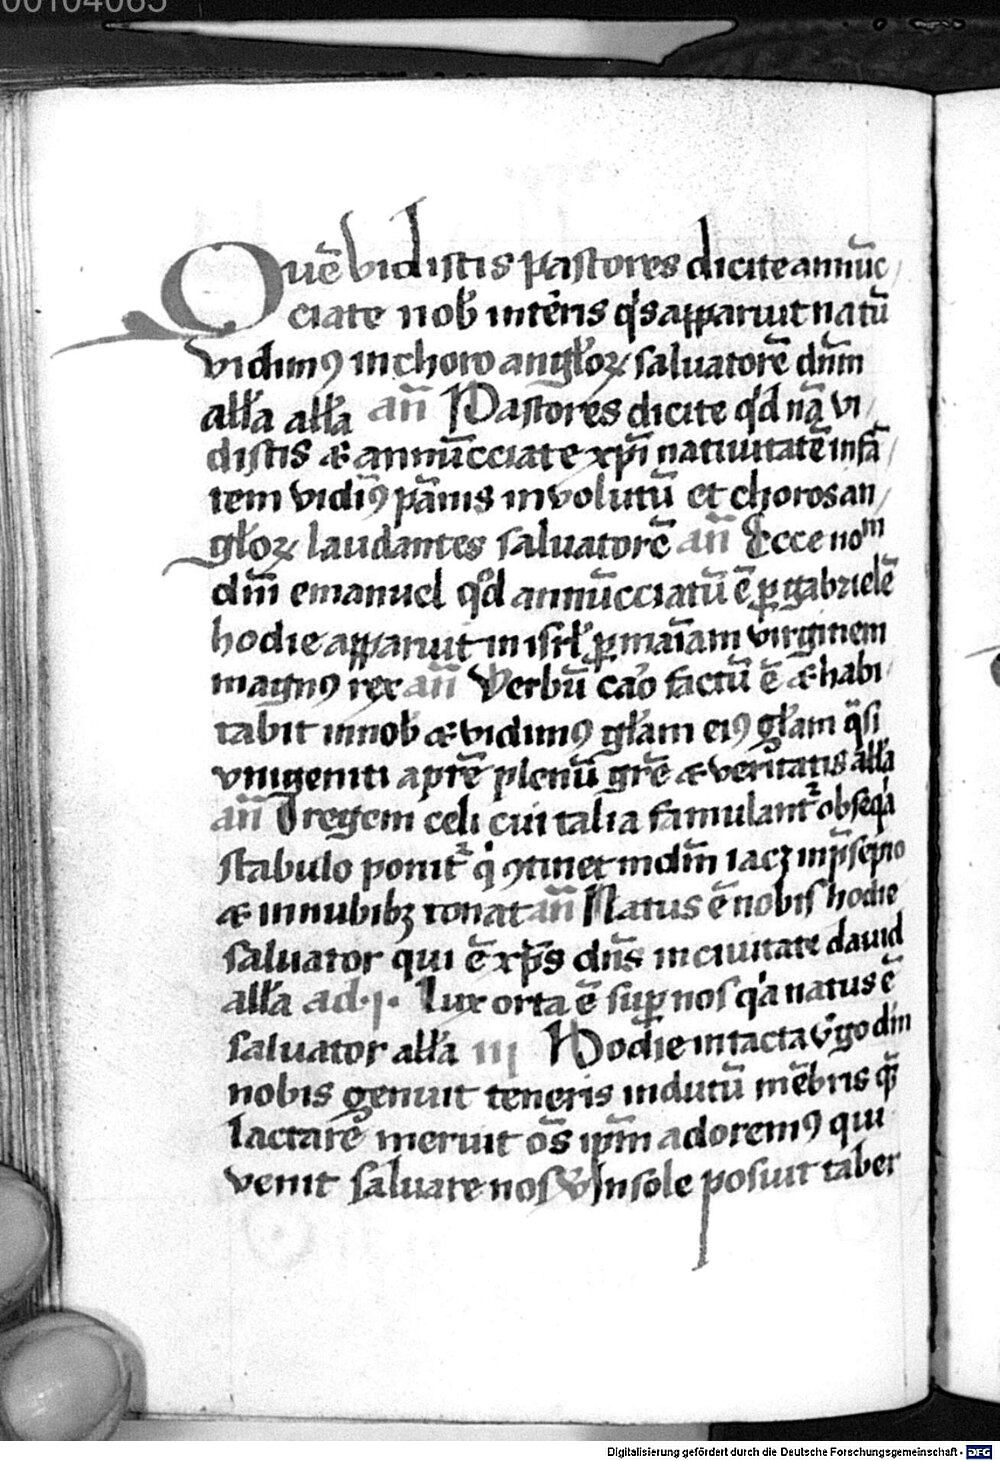 00104065
Quē vidistis pastores dicite annūc/
ciate nob̄ in tēris q̓s apparuit natū
vidimꝰ in choro angl̓oꝝ saluatorē dn̄m
all̓a all̓a an̄ Pastores dicite qd̓ nā vi/
distis & annūcciate xp̄i natiuitatē infā/
tem vidiꝰ pānis inuolutū et choros an/
gl̓oꝝ laudantes saluatorē an̄ Ecce noᵐ
dn̄i emanuel qd̓ annūcciatū ē ꝑ gabrielē
hodie apparuit in isrl̓ ꝑ mar̄iam virginem
magnꝰ rex an̄ Verbū caͦ factū ē & habi
tabit in nob̓ & vidimꝰ gl̓am eiꝰ gl̓am qͣsi
vnigeniti a prē plenū grē & veritatis all̓a
an̄ O regem celi cui talia famulant᷑ obseqͥa
stabulo ponit᷑ qͥ ꝯtinet mdm̄ iacꝫ in p̄sepio
& in nubibꝫ tonat an̄ Natus ē nobis hodie
saluator qui ē xp̄s dn̄s in ciuitate dauid
all̓a ad .j. Lux orta ē suꝑ nos qͥa natus ē
saluator all̓a iij Hodie intacta v̓go dm̄
nobis genuit teneris indutū mēbris qē
lactare meruit ōs ip̄m adoremꝰ qui
venit saluare nos ℣ In sole posuit taber
Digitalisierung gefördert durch die Deutsche Forschungsgemeinschaft - DFG